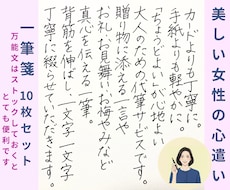 美しい女性の心遣い
カードよりも丁寧に。
手紙よりも軽やかに。
「ちょうどよい」が心地よい
大人のための代筆サービスです。
贈り物に添える一言や
お礼、お見舞い、お悔やみなど
真心を伝える一筆。
背筋を伸ばし、一文字一文字
丁寧に綴らせていただきます。
一筆箋 10枚セット
万能文はストックしておくと
とても便利です